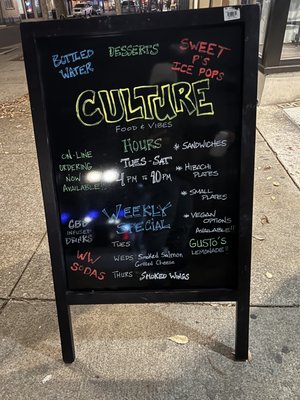 BOTTLED
WATER
DESSERTS
SWEET
P'S
ICE POPS
CULTURE
FOOD & VIBES
HOURS
TUES-SAT
4 PM TO 10PM
ON-LINE
ORDERING
NOW
AVAILABLE!!!
* SANDWICHES
* HIBACHI
PLATES
* SMALL
PLATES
* VEGAN
OPTIONS
AVAILABLE!!
GUSTO'S
LEMONADE!!
CBD
INFUSED
DRINKS
WV
SODAS
WEEKLY
SPECIAL
TUES
WEDS SMOKED SALMON
GRILLED CHEESE
THURS SMOKED WINGS